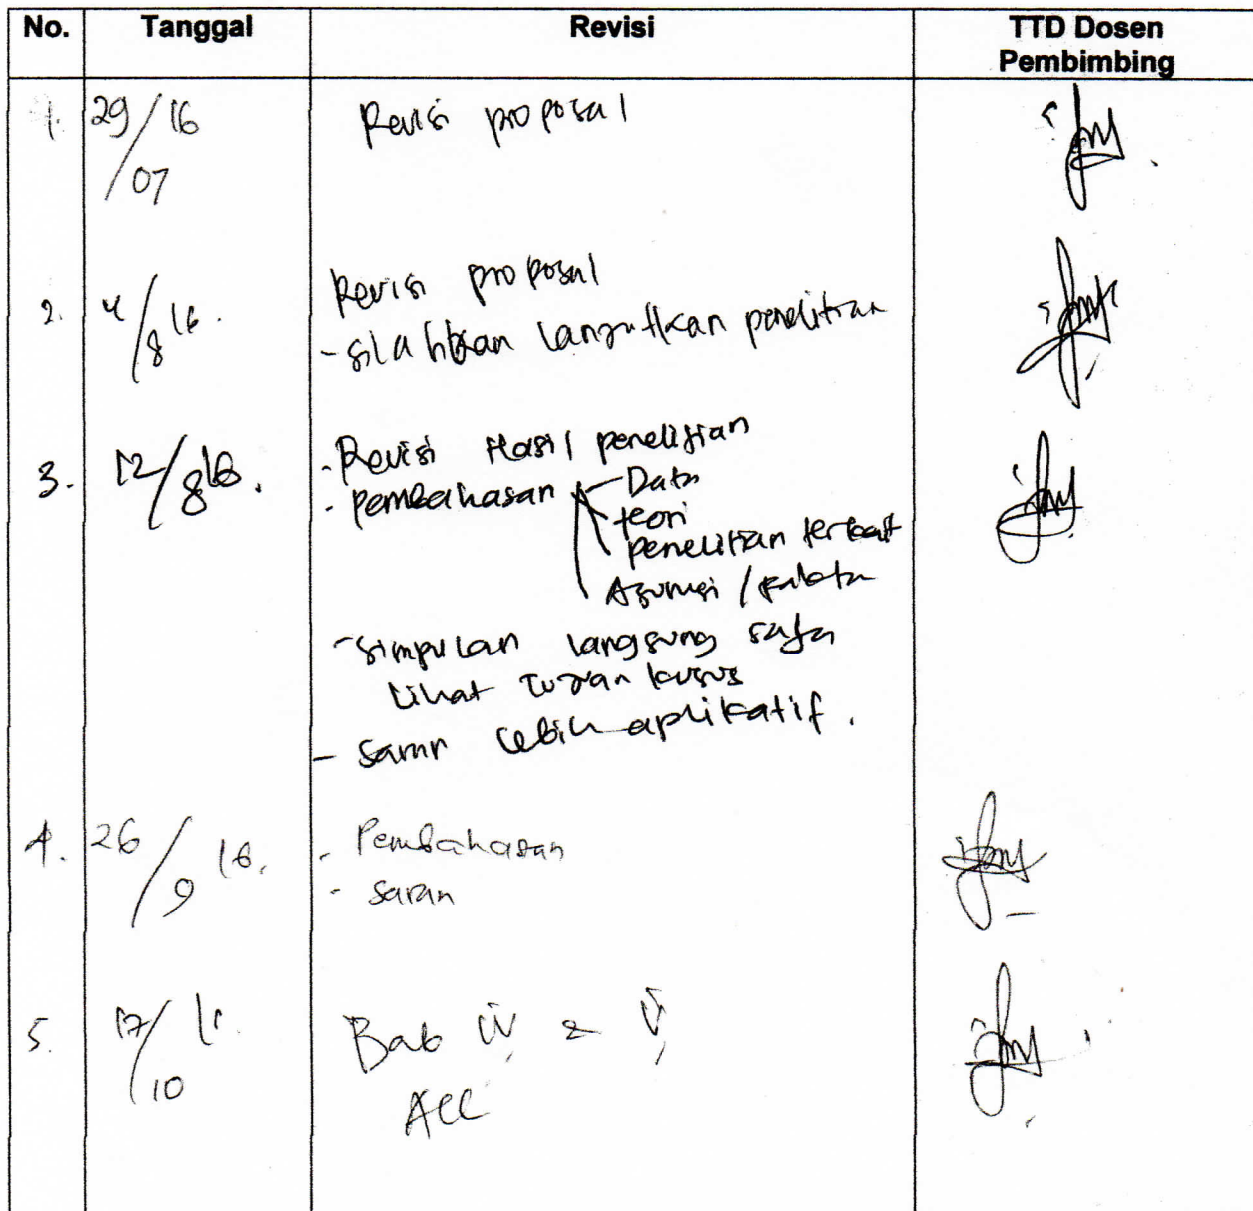 No. Tanggal Revisi TTD Dosen
Pembimbing
1. 29/07 16 Revisi proposal
2. 4/8 16. Revisi proposal
- silahkan lanjutkan penelitian
3. 12/8 16. - Revisi Hasil penelitian
- pembahasan - Data
teori
penelitian terkait
Asumsi /
- simpulan langsung saja
lihat tujuan kusus
- saran lebih aplikatif.
4. 26/9 16. - Pembahasan
- saran
5. 17/10 Bab IV & V
ACC